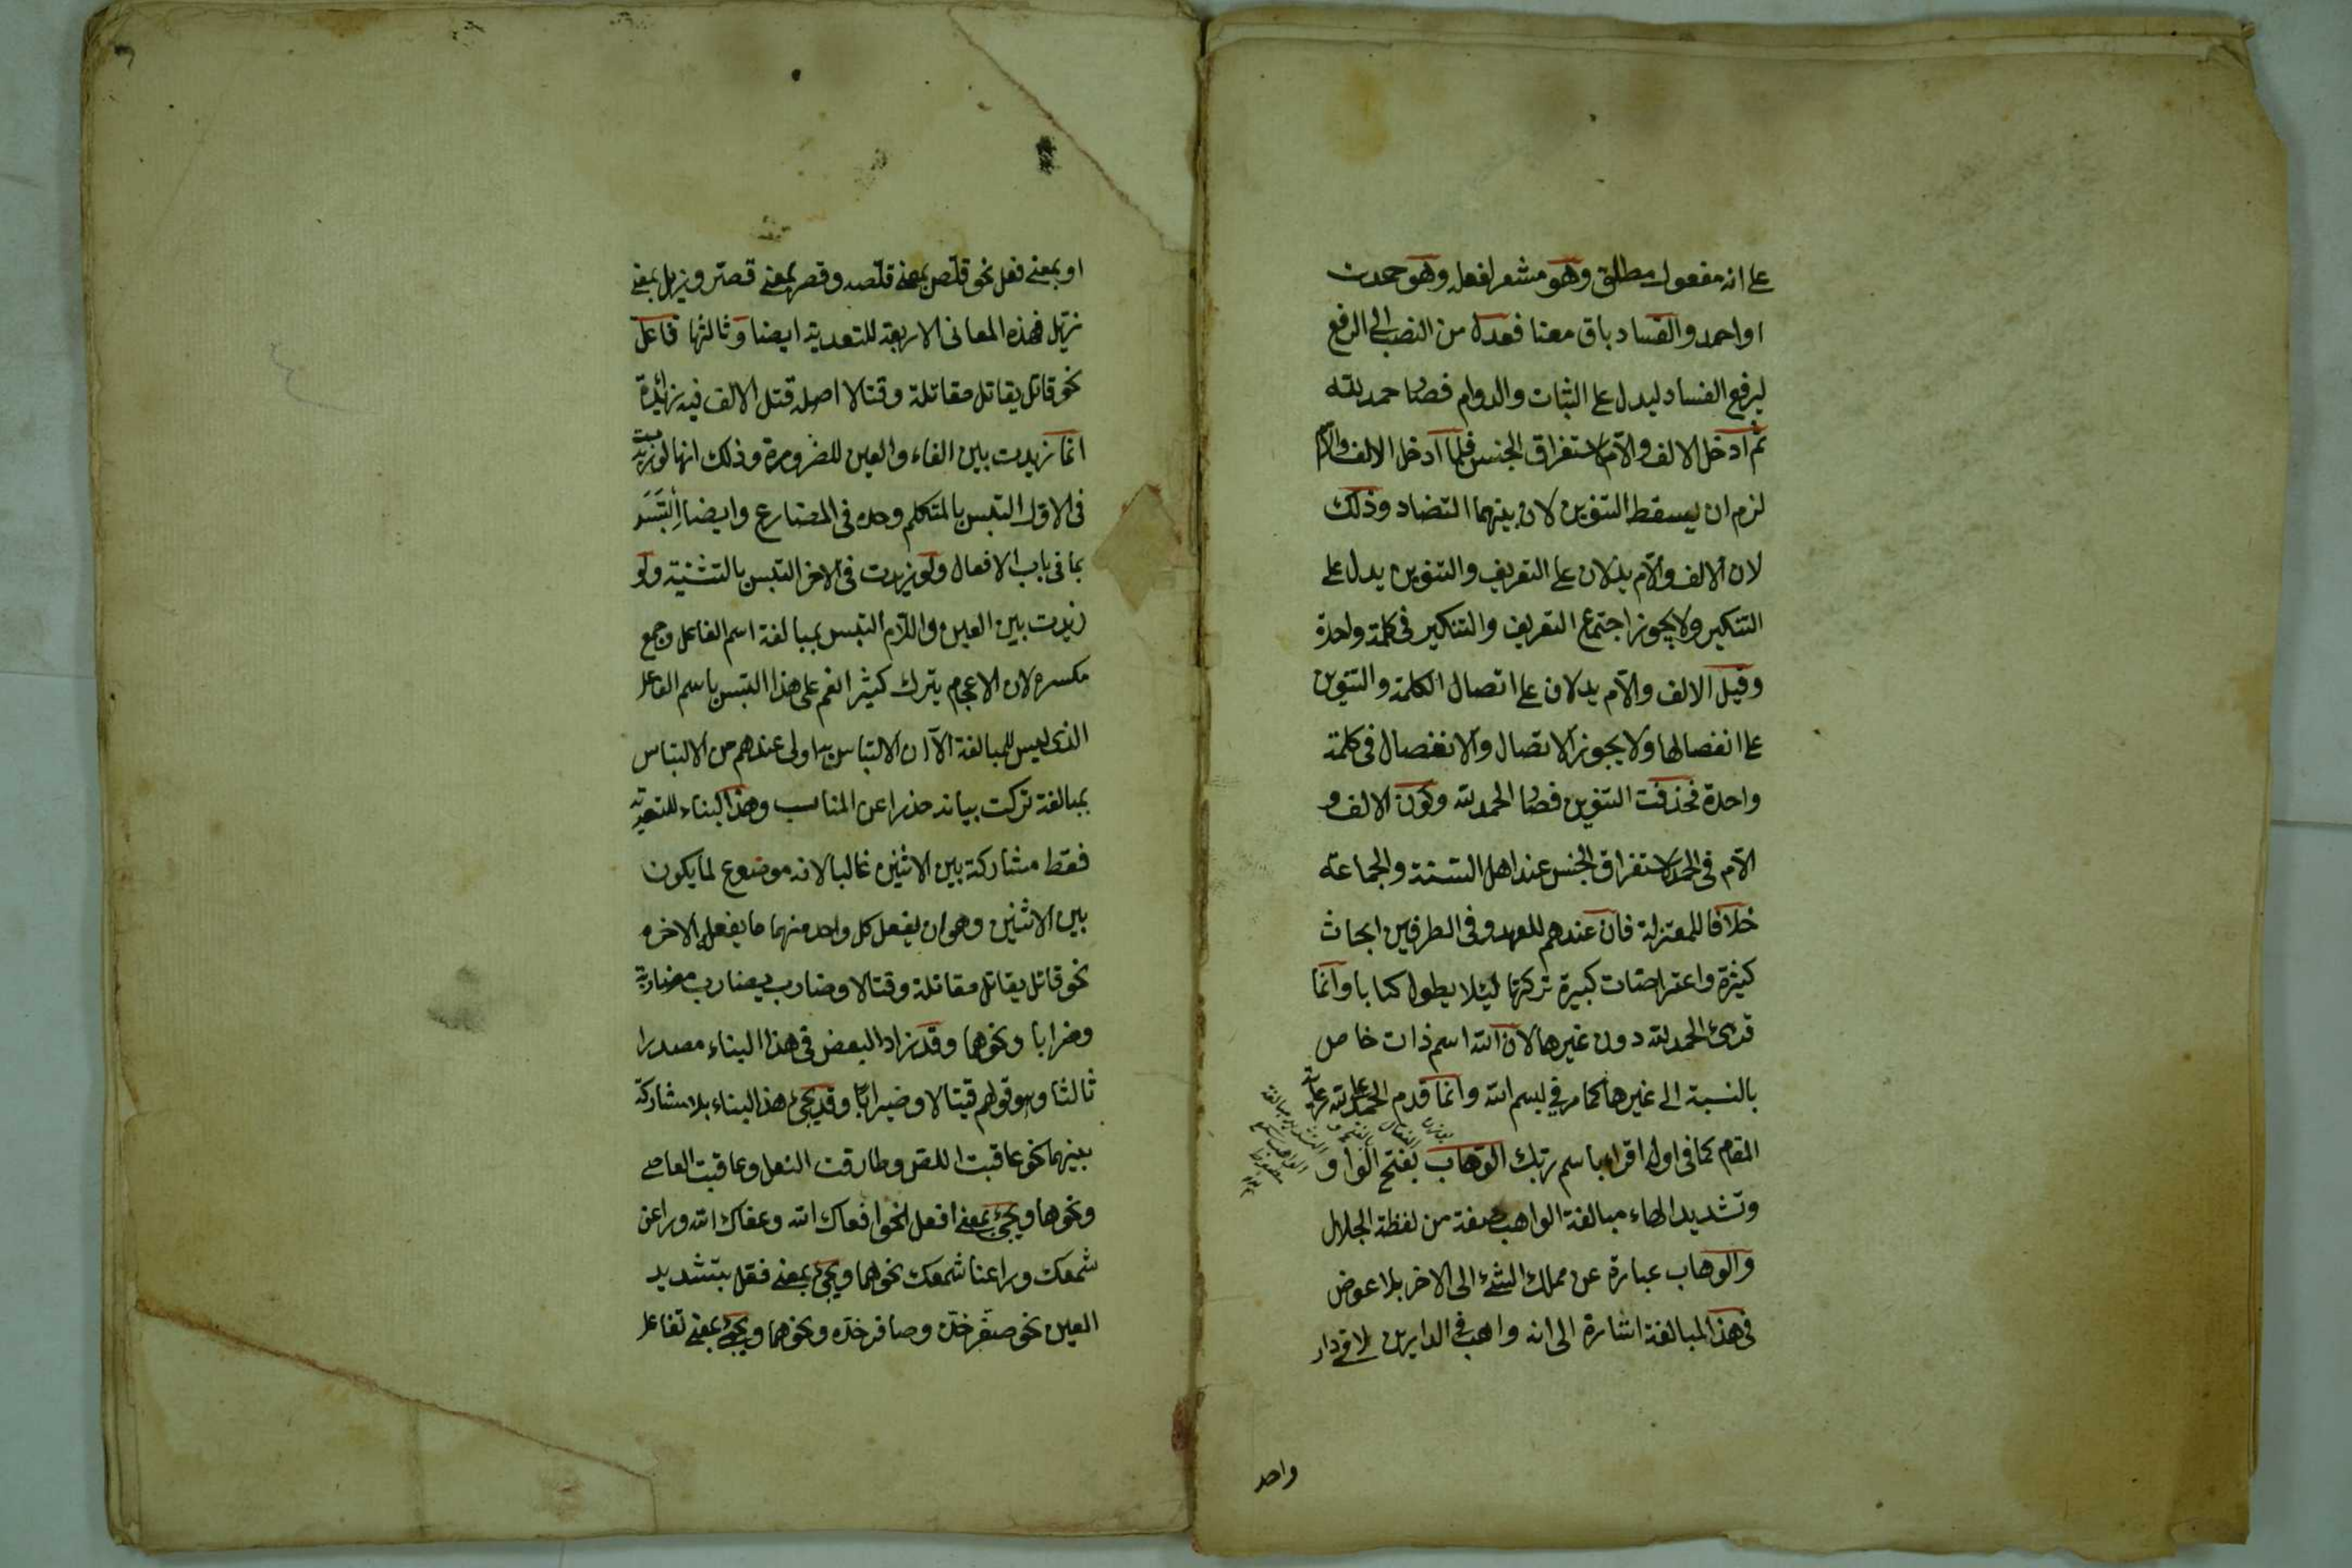 على انه مفعول مطلق وهو مشعر لفعله وهو حمدت
او احمد والفساد باق معنا فعدله من النصب الى الرفع
ليرفع الفساد ليدل على الثبات والدوام فصار حمد لله
ثم ادخل الالف والام لاستغراق الجنس فلما ادخل الالف والام
لزم ان يسقط التنوين لان بينهما التضاد وذلك
لان الالف والام يدلان على التعريف والتنوين يدل على
التنكير ولا يجوز اجتماع التعريف والتنكير في كلمة واحدة
وقيل الالف والام يدلان على اتصال الكلمة والتنوين
على انفصالها ولا يجوز الاتصال والانفصال في كلمة
واحدة فحذفت التنوين فصار الحمد لله وكون الالف و
الام في الحمد لاستغراق الجنس عند اهل السنة والجماعة
خلافا للمعتزلة فان عندهم للعهد وفي الطرفين ابحاث
كثيرة واعتراضات كبيرة تركتها ليلا يطول كتابا وانما
قرئ الحمد لله دون غيرها لان الله اسم ذات خاص
بالنسبة الى غيرها كما مر في بسم الله وانما قدم الحمد على لله رعاية
المقام كما في اول اقرا باسم ربك الوهاب بفتح الواو
وتشديد الهاء مبالغة الواهب صفة من لفظة الجلال
والوهاب عبارة عن مملك الشئ الى الاخر بلا عوض
في هذا المبالغة اشارة الى انه واهب في الدارين لا في دار
واحد
او بمعنى فعل نحو قلّص بمعنى قلصه وقصر بمعنى قصّر وزيل بمعنى
زيّل فهذه المعاني الاربعة للتعدية ايضا وثالثها فاعل
نحو قاتل يقاتل مقاتلة وقتالا اصله قتل الالف فيه زائدة
انما زيدت بين الفاء والعين للضرورة وذلك انها لو زيدت
في الاول التبس بالمتكلم وحده في المضارع وايضا التبس
بما في باب الافعال ولو زيدت في الاخر التبس بالتثنية ولو
زيدت بين العين واللام التبس بمبالغة اسم الفاعل وجمع
مكسره لان الاعجم يترك كثيرا نعم على هذا التبس باسم الفاعل
الذي ليس للمبالغة الا ان الالتباس به اولى عندهم من الالتباس
بمبالغة تركت بيانه حذرا عن المناسب وهذا البناء للتعدية
فقط مشاركة بين الاثنين غالبا لانه موضوع لما يكون
بين الاثنين وهو ان يفعل كل واحد منهما ما يفعله الاخر
نحو قاتل يقاتل مقاتلة وقتالا وضارب يضارب مضاربة
وضرابا ونحوها وقد زاد البعض في هذا البناء مصدرا
ثالثا وهو قولهم قيتالا وضيرابا وقد يجئ هذا البناء بلا مشاركة
بينهما نحو عاقبت اللص وطارقت النعل وعاقبت العاصي
ونحوها ويجئ بمعنى افعل نحو افعاك الله وعفاك الله وراعن
شمعك وراعنا شمعك نحوهما ويجئ بمعنى فعل بتشديد
العين نحو صعّر خدّه وصاعر خدّه ونحوهما ويجئ بمعنى تفاعل